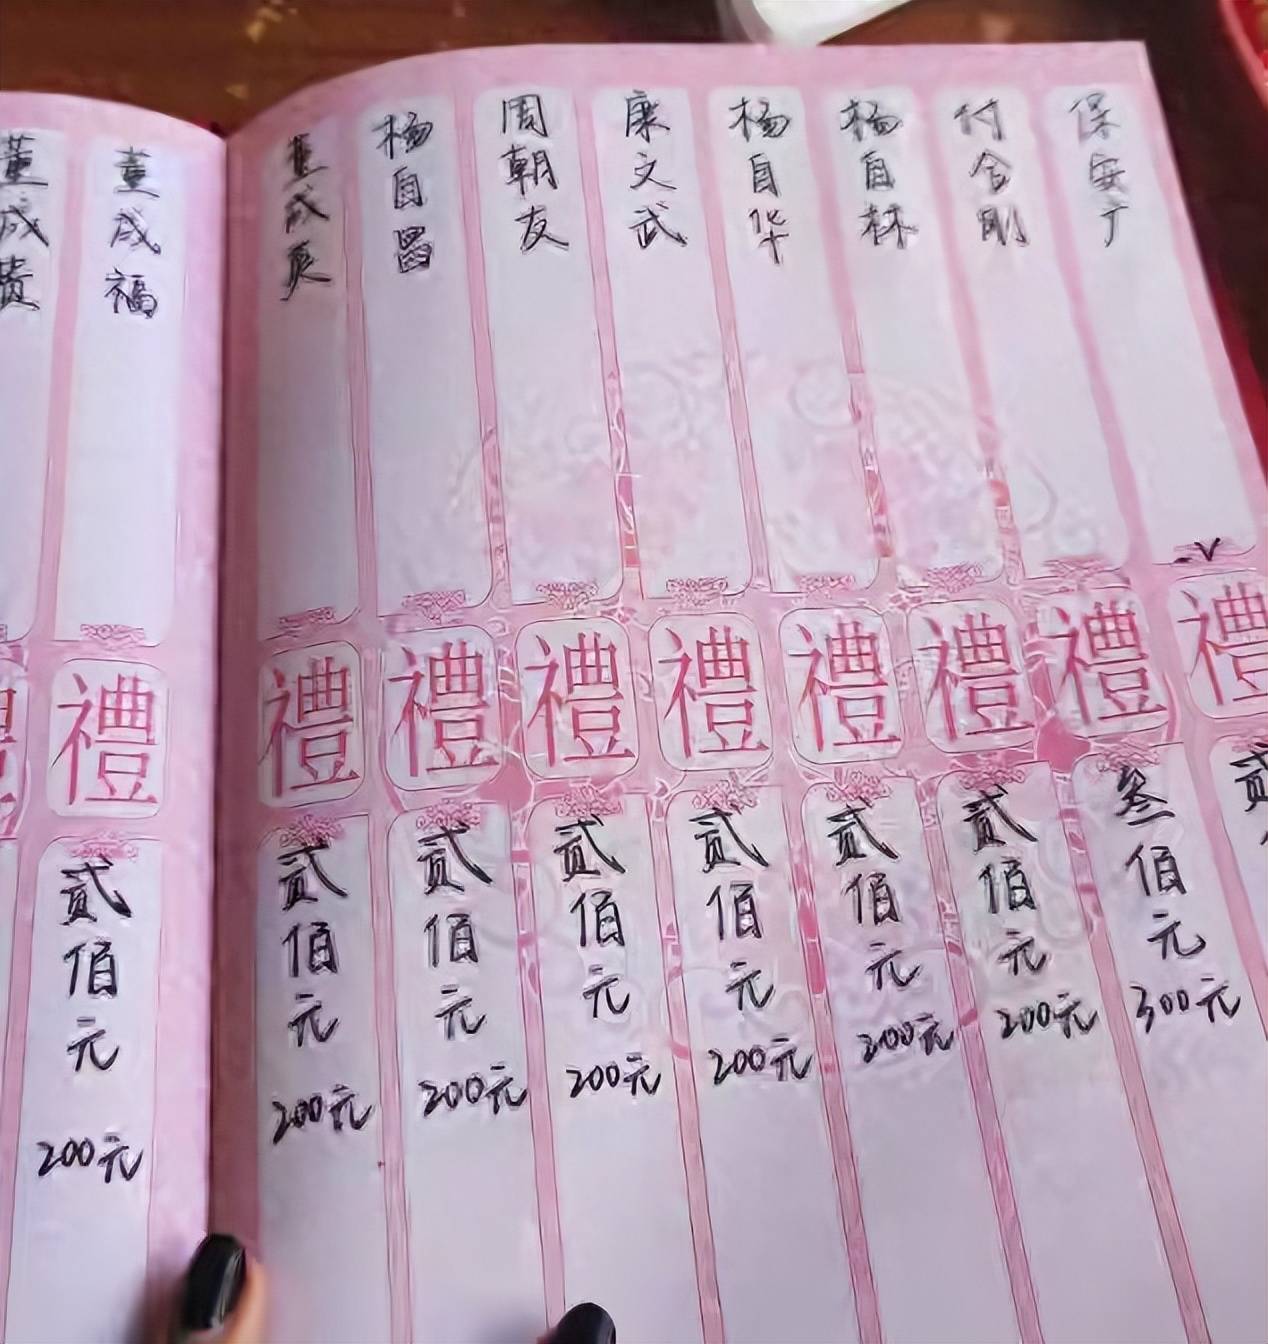 保安广
付合刚
杨自林
杨自华
康文武
周朝友
杨自昌
董成英
董成福
董成贵
禮
禮
禮
禮
禮
禮
禮
禮
禮
贰
叁佰元
300元
贰佰元
200元
贰佰元
200元
贰佰元
200元
贰佰元
200元
贰佰元
200元
贰佰元
200元
贰佰元
200元